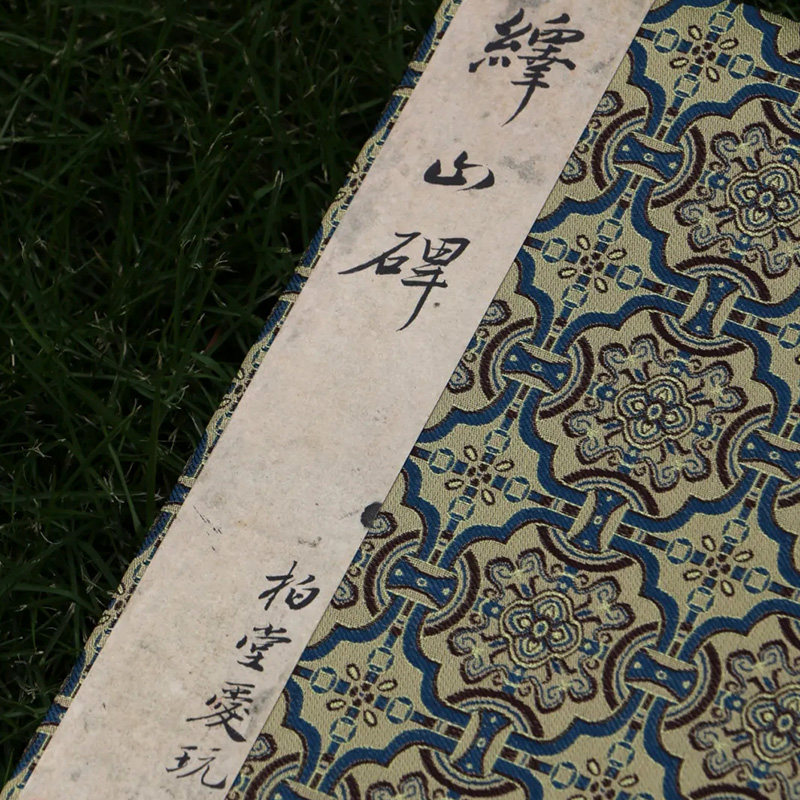 繹山碑
柏堂爱玩